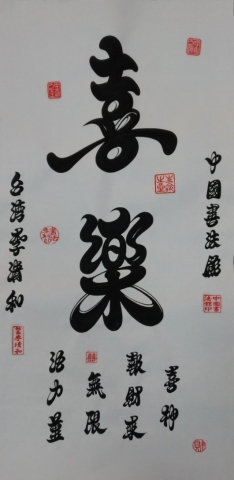 喜
樂
中國書法館
台灣李清和
喜神
報財來
無限
活力藍